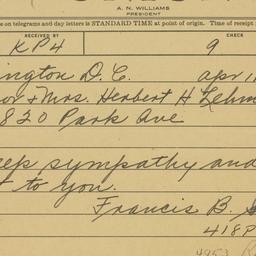 A. N. WILLIAMS
PRESIDENT
on telegrams and day letters is STANDARD TIME at point of origin. Time of receipt
RECEIVED BY
CHECK
KP4 9
ington D.C. Apr 1
or & Mrs. Herbert H Lehm
820 Park Ave
eep sympathy and
t to you.
Francis B.
418P
4953